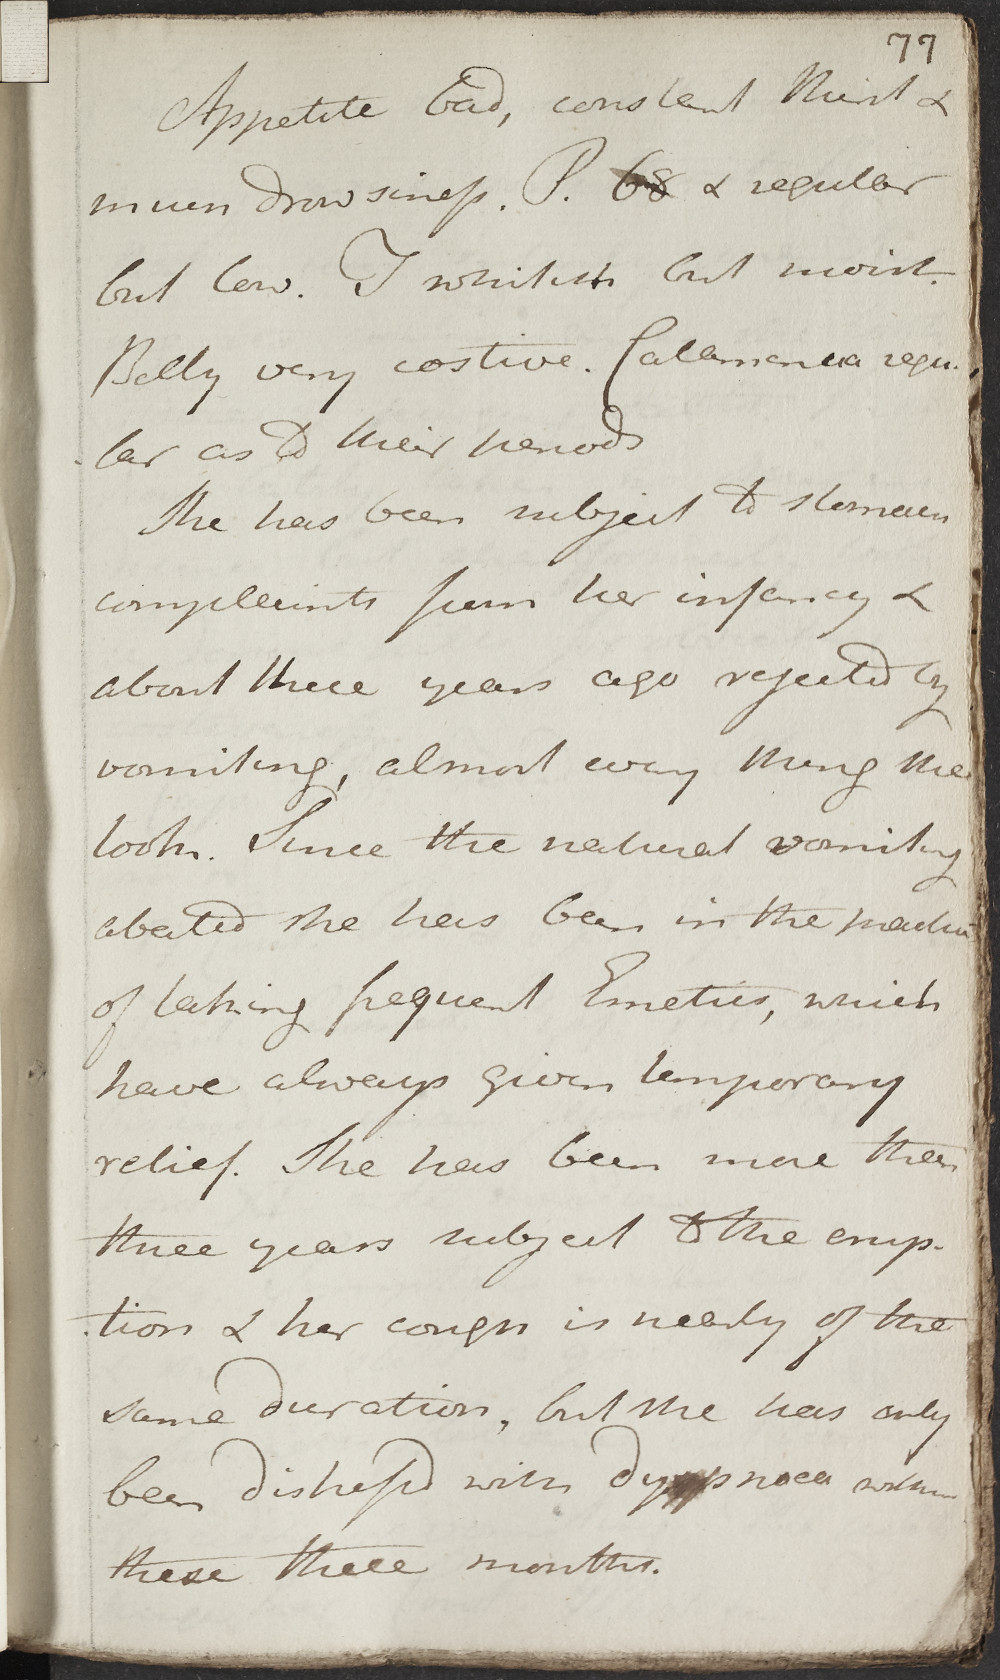 77
Appetite bad, constant thirst &
much drowsiness. P. 68 & regular
but low. T whitish but moist.
Belly very costive. Catamenia regu-
lar as to their periods
She has been subject to stomach
complaints from her infancy &
about three years ago rejected by
vomiting, almost every thing she
took. Since the natural vomiting
abated she has been in the practice
of taking frequent Emetics, which
have always given temporary
relief. She has been more than
three years subject to the erup-
tion & her cough is nearly of the
same duration, but she has only
been distressed with dyspnoea within
these three months.